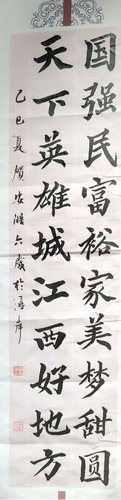 国强民富裕家美梦甜圆
天下英雄城江西好地方
乙巳夏贺
六岁於